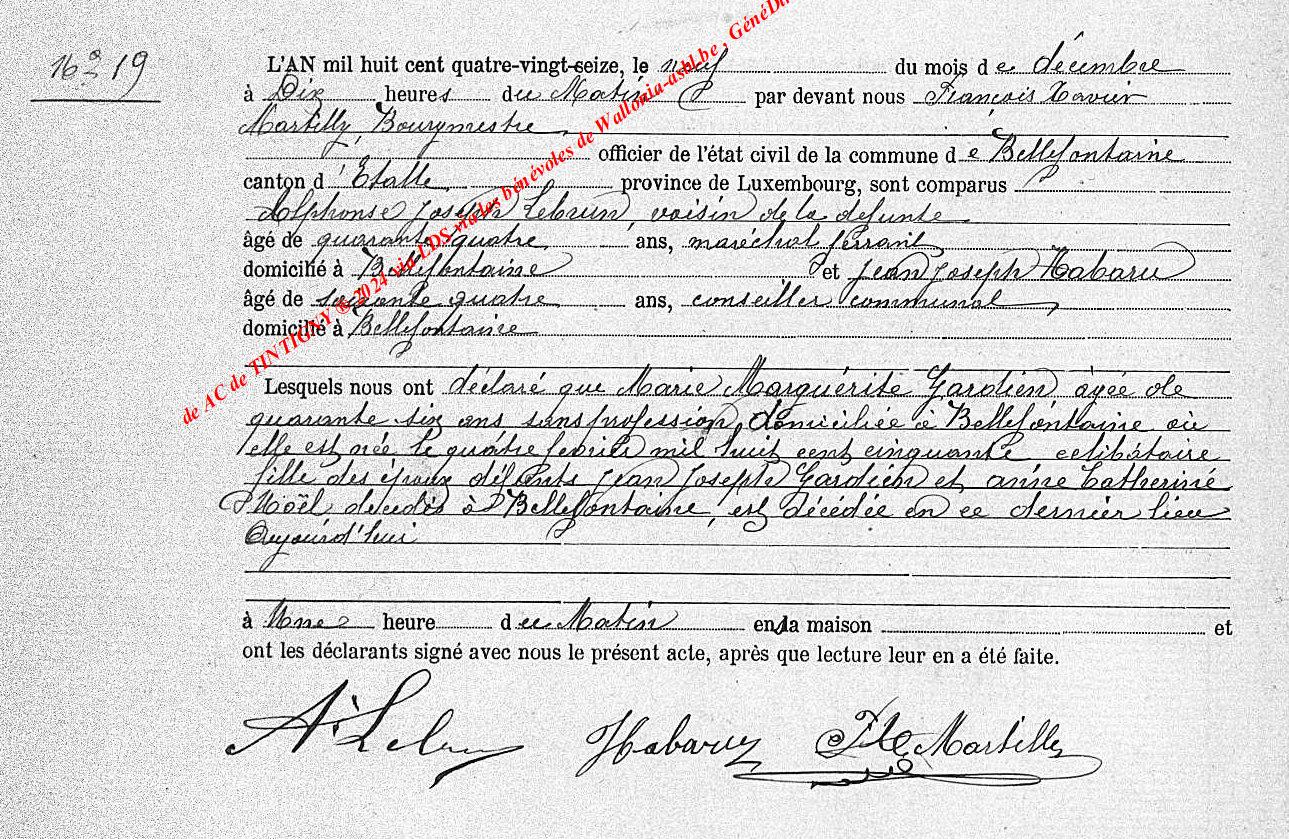 N° 19
L'AN mil huit cent quatre-vingt-seize, le neuf du mois de décembre
à Dix heures du Matin par devant nous François Xavier
Martilly, Bourgmestre
officier de l'état civil de la commune de Bellefontaine
canton d'Etalle province de Luxembourg, sont comparus
Alphonse Joseph Lebrun, voisin de la défunte
âgé de quarante quatre ans, maréchal ferrant
domicilié à Bellefontaine et Jean Joseph Habaru
âgé de soixante quatre ans, conseiller communal
domicilié à Bellefontaine
Lesquels nous ont déclaré que Marie Marguérite Gardien, agée de
quarante six ans, sans profession, domiciliée à Bellefontaine où
elle est née le quatre fevrier mil huit cent cinquante celibataire
fille des époux défunts Jean Joseph Gardien et anne Catherine
Noël decedés à Bellefontaine, est décédée en ce dernier lieu
Aujourd'hui
à Une heure du Matin en sa maison et
ont les déclarants signé avec nous le présent acte, après que lecture leur en a été faite.
A. Lebrun Habaru Martilly
de AC de TINTIGNY ® 2024 via LDS via les bénévoles de Wallonia-asbl.be , GénéDi